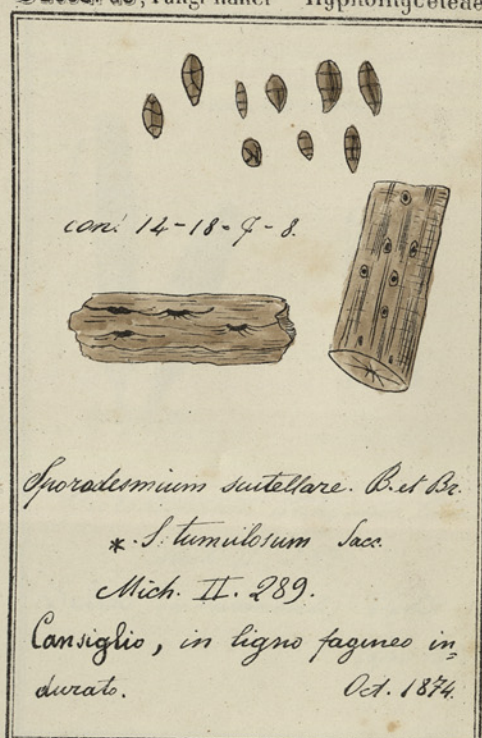 Saccardo, Fungi italici Hyphomyceteae
con: 14-18 = 7-8.
Sporodesmium scutellare. B. et Br.
* S. tumulosum Sacc.
Mich. II. 289.
Cansiglio, in ligno fagineo in=
durato. Oct. 1874.